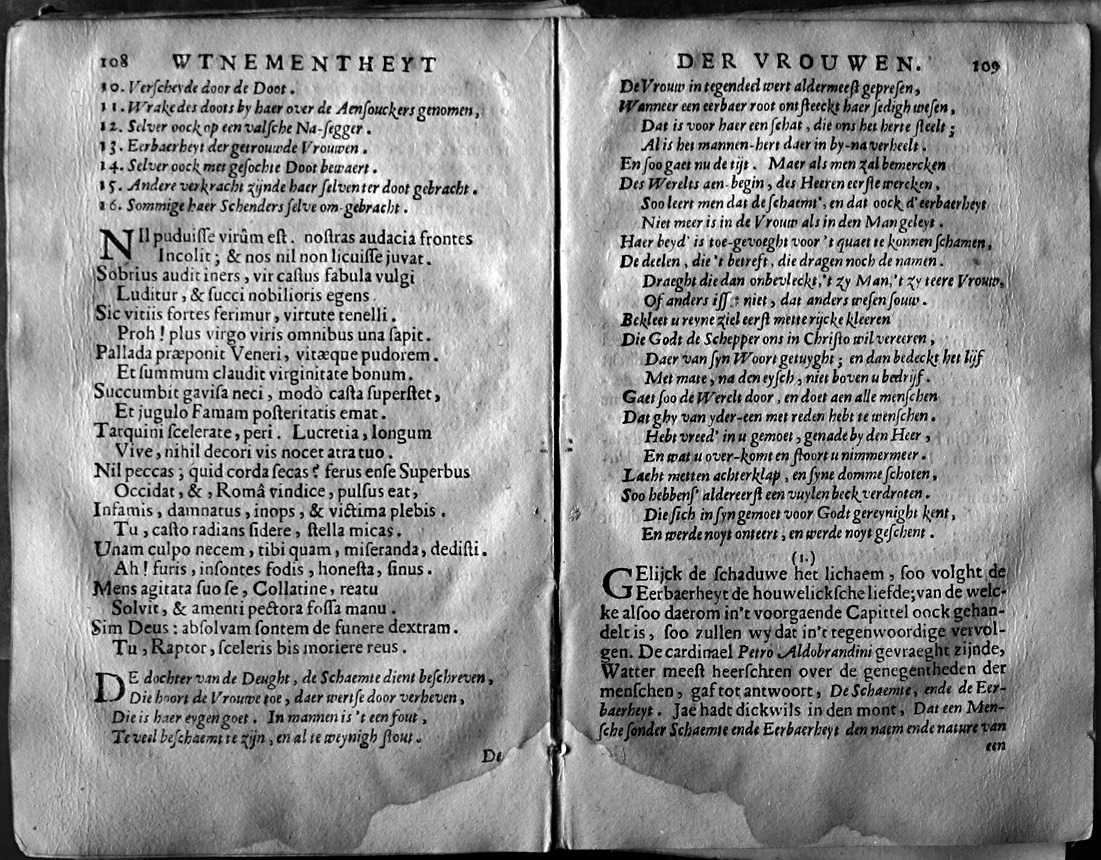 108 WTNEMENTHEYT
10. Verscheyde door de Doot.
11. Wrake des doots by haer over de Aensouckers genomen,
12. Selver oock op een valsche Na-segger.
13. Eerbaerheyt der getrouwde Vrouwen.
14. Selver oock met gesochte Doot bewaert.
15. Andere verkracht zijnde haer selven ter doot gebracht.
16. Sommige haer Schenders selve om-gebracht.
NIl puduisse virûm est. nostras audacia frontes
Incolit; & nos nil non licuisse juvat.
Sobrius audit iners, vir castus fabula vulgi
Luditur, & succi nobilioris egens.
Sic vitiis fortes ferimur, virtute tenelli.
Proh! plus virgo viris omnibus una sapit.
Pallada præponit Veneri, vitæque pudorem.
Et summum claudit virginitate bonum.
Succumbit gavisa neci, modò casta superstet,
Et jugulo Famam posteritatis emat.
Tarquini scelerate, peri. Lucretia, longum
Vive, nihil decori vis nocet atra tuo.
Nil peccas; quid corda secas? ferus ense Superbus
Occidat, &, Româ vindice, pulsus eat,
Infamis, damnatus, inops, & victima plebis.
Tu, casto radians sidere, stella micas.
Unam culpo necem, tibi quam, miseranda, dedisti.
Ah! furis, insontes fodis, honesta, sinus.
Mens agitata suo se, Collatine, reatu
Solvit, & amenti pectora fossa manu.
Sim Deus: absolvam sontem de funere dextram.
Tu, Raptor, sceleris bis moriere reus.
DE dochter van de Deught, de Schaemte dient beschreven,
Die hoort de Vrouwe toe, daer wertse door verheven,
Die is haer eygen goet. In mannen is 't een fout,
Te veel beschaemt te zijn, en al te weynigh stout.
De
DER VROUWEN. 109
De Vrouw in tegendeel wert aldermeest gepresen,
Wanneer een eerbaer root ontsteeckt haer sedigh wesen,
Dat is voor haer een schat, die ons het herte steelt;
Al is het mannen-hert daer in by-na verheelt.
En soo gaet nu de tijt. Maer als men zal bemercken
Des Werelts aen-begin, des Heeren eerste wercken,
Soo leert men dat de schaemt', en dat oock d'eerbaerheyt
Niet meer is in de Vrouw als in den Man geleyt.
Haer beyd' is toe-gevoeght voor 't quaet te konnen schamen,
De deelen, die 't betreft, die dragen noch de namen.
Draeght die dan onbevleckt, 't zy Man, 't zy teere Vrouw,
Of anders niet, dat anders wesen souw.
Bekleet u reyne ziel eerst mette rijcke kleeren
Die Godt de Schepper ons in Christo wil vereeren,
Daer van syn Woort getuyght; en dan bedeckt het lijf
Met mate, na den eysch, niet boven u bedrijf.
Gaet soo de Werelt door, en doet aen alle menschen
Dat ghy van yder-een met reden hebt te wenschen.
Hebt vreed' in u gemoet, genade by den Heer,
En wat u over-komt en stoort u nimmermeer.
Lacht metten achterklap, en syne domme schoten,
Soo hebbens' aldereerst een vuylen beck verdroten.
Die sich in syn gemoet voor Godt gereynight kent,
En werde noyt onteert, en werde noyt geschent.
(1.)
GElijck de schaduwe het lichaem, soo volght de
Eerbaerheyt de houwelicksche liefde; van de welc-
ke alsoo daerom in't voorgaende Capittel oock gehan-
delt is, soo zullen wy dat in't tegenwoordige vervol-
gen. De cardinael Petro Aldobrandini gevraeght zijnde,
Watter meest heerschten over de genegentheden der
menschen, gaf tot antwoort, De Schaemte, ende de Eer-
baerheyt. Jae hadt dickwils in den mont, Dat een Men-
sche sonder Schaemte ende Eerbaerheyt den naem ende nature van
een